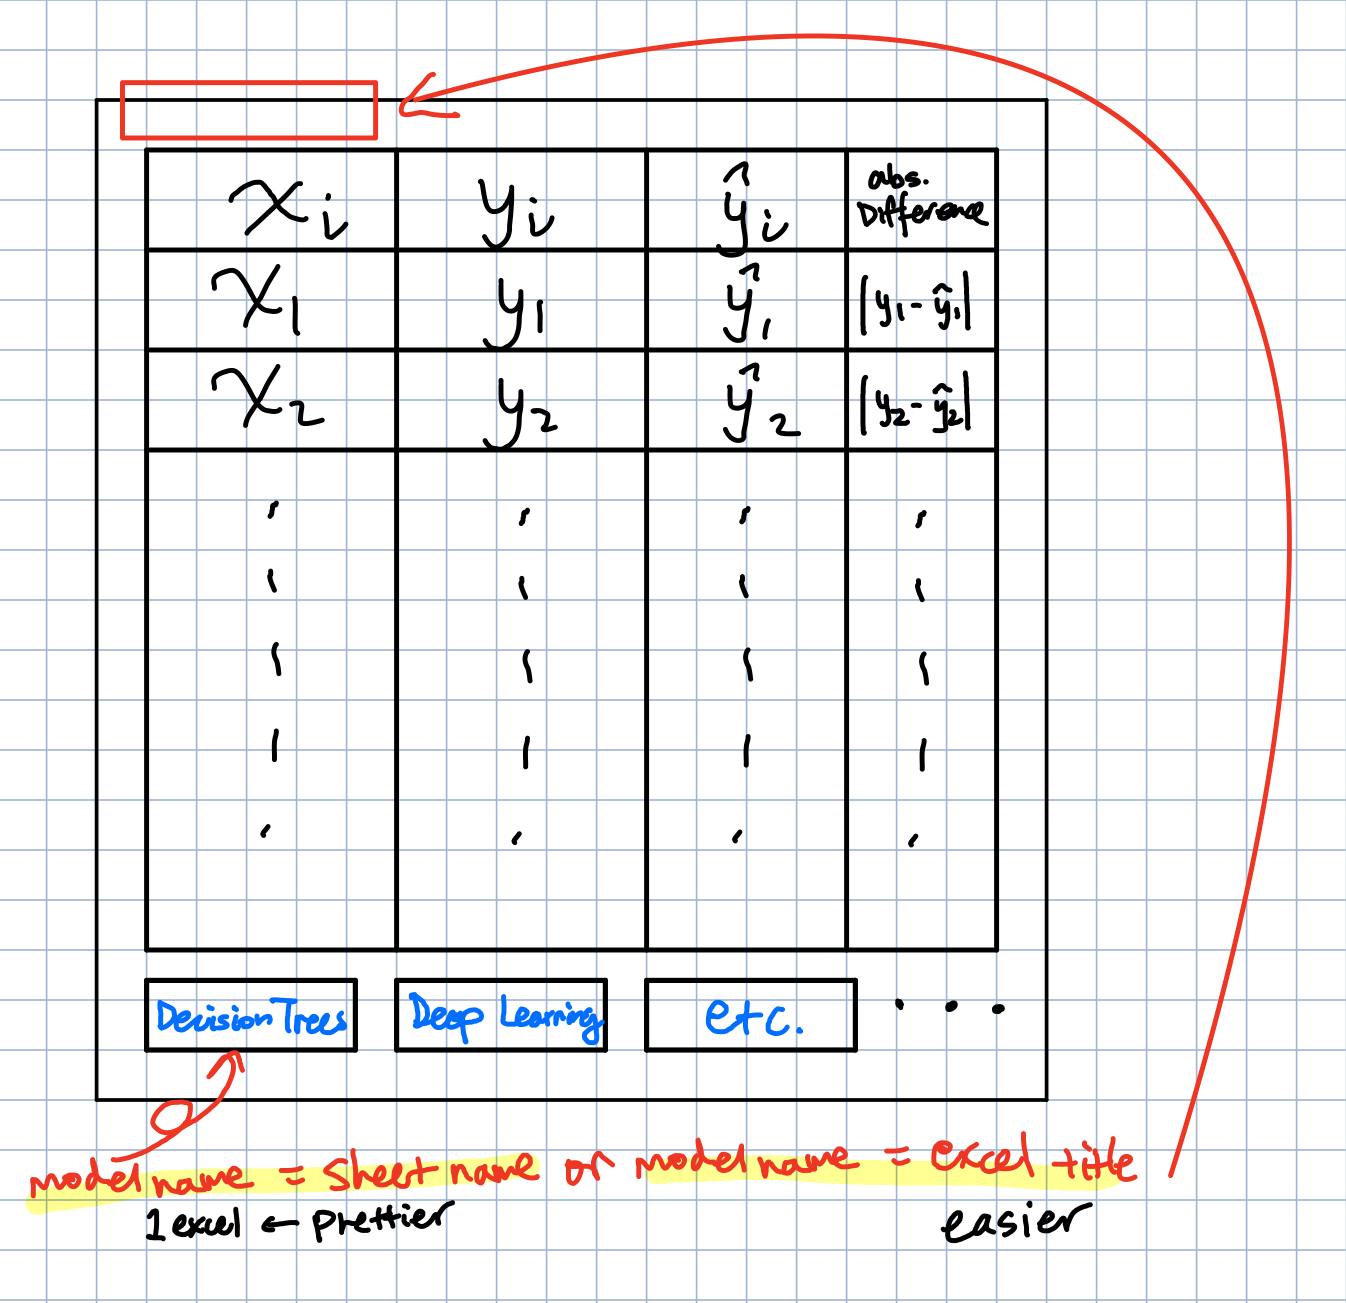 xᵢ yᵢ ŷᵢ abs. Difference
x₁ y₁ ŷ₁ |y₁ - ŷ₁|
x₂ y₂ ŷ₂ |y₂ - ŷ₂|
Decision Trees Deep Learning etc. . . .
model name = Sheet name or model name = excel title
1 excel ← prettier easier